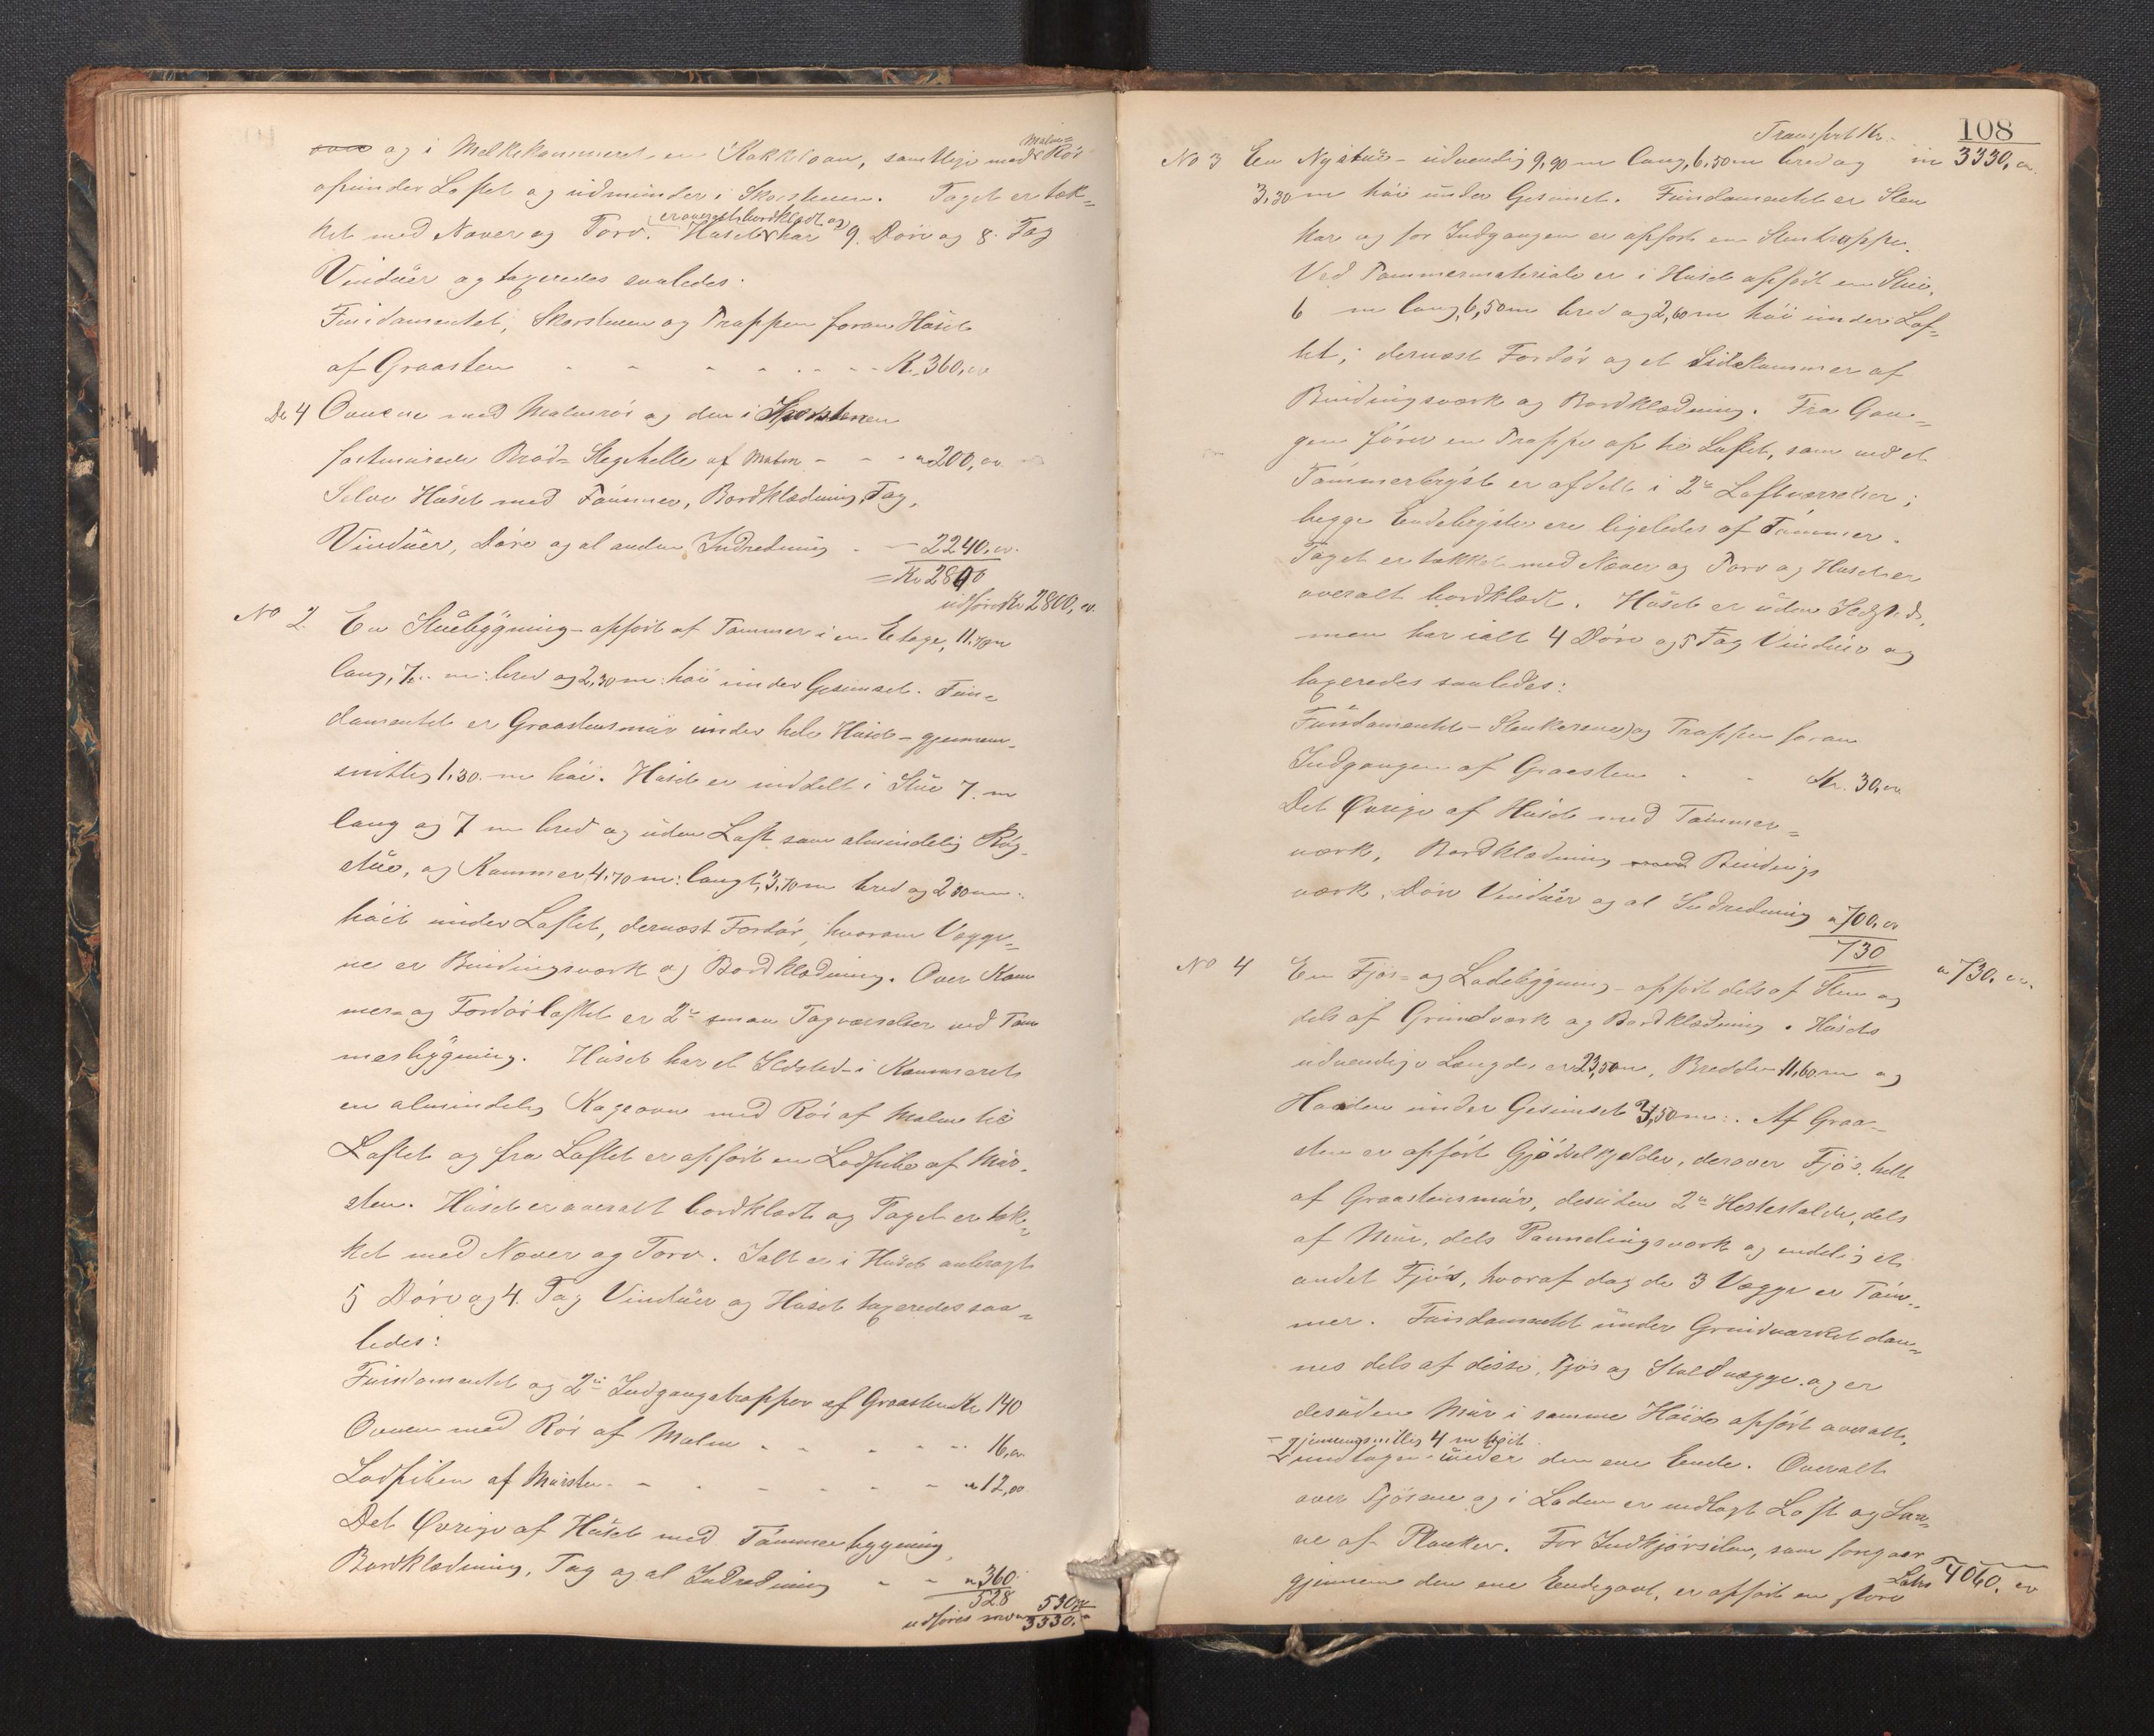 ovn og i Melkekammeret en Kakkelovn, samtlige med Malm= Rör
opunder Loftet og udmunder i Skorstenen. Taget er tæk=
ket med Næver og Torv. Huset er overalt bordklædt og har 9 Döre og 8 Fag
Vinduer og taxeredes saaledes:
Fundamentet, Skorstenen og Trappen foran Huset
af Graasten - - - - - - - Kr. 360,00
De 4 Ovnene med Malmrör og den i Skorstenen
fastmurede Bröd= Stegehelle af Malm - - - " 200,00
Selve Huset med Tömmer, Bordklædning, Tag,
Vinduer, Döre og al anden Indredning - - 2240,00
= Kr 2800
udföres Kr 2800,00
No 2. En Stuebygning - opfört af Tömmer i en Etage, 11,70 m
lang, 7,.. m: bred og 2,30 m: höi under Gesimset. Fun=
damentet er Graastensmur under hele Huset - gjennem=
snittlig 1,30 m höi. Huset er inddelt i Stue 7 m
lang og 7 m bred og uden Loft som almindelig Rög=
stue, og Kammer 4,70 m: langt, 3,70 m bred og 2,30 m
höit under Loftet, dernæst Fordör, hvorom Vægge=
ne er Bindingsværk og Bordklædning. Over Kam
mer= og Fordörloftet er 2de smaa Tagværelser ved Töm
merbygning. Huset har et Ildsted - i Kammeret
en almindelig Kageovn med Rör af Malm til
Loftet og fra Loftet er opfört en Lodpibe af Mur=
sten. Huset er overalt bordklædt og Taget er tæk=
ket med Næver og Torv. Ialt er i Huset anbragt
5 Döre og 4 Fag Vinduer og Huset taxeredes saa=
ledes:
Fundamentet og 2de Indgangstrapper af Graasten Kr 140
Ovnen med Rör af Malm - - - - - 16,00
Lodpiben af Mursten - - - - - - " 12,00
Det Övrige af Huset med Tömmerbygning,
Bordklædning, Tag og al Indredning - - " 360
528
udföres med 530,00
3330,00
108
Transport Kr.
No 3 En Nystue - udvendig 9,90 m lang, 6,50 m bred og 3330,00
3,30 m höi under Gesimset. Fundamentet er Sten
kar og for Indgangen er opfört en Stentrappe.
Ved Tömmermateriale er i Huset opfört en Stue,
6 m lang, 6,50 m bred og 2,60 m höi under Lof=
tet; dernæst Fordör og et Sidekammer af
Bindingsværk og Bordklædning. Fra Gan=
gen förer en Trappe op til Loftet, som ved et
Tömmerbryst er afdelt i 2de Loftværelser;
begge Endebryster ere ligeledes af Tömmer.
Taget er tækket med Næver og Torv og Huset er
overalt bordklædt. Huset er uden Ildsted,
men har ialt 4 Döre og 5 Fag Vinduer og
taxeredes saaledes:
Fundamentet - Stenkarene) og Trappen foran
Indgangen af Graasten - - Kr. 30,00
Det Övrige af Huset med Tömmer=
værk, Bordklædning Bindings
værk, Döre Vinduer og al Indredning " 700,00
730
" 730,00
No 4 En Fjös= og Ladebygning - opfört dels af Sten og
dels af Grindværk og Bordklædning. Husets
udvendige Længde er 23,50 m, Bredden 11,60 m og
Höiden under Gesimset 3,50 m:. Af Graa=
sten er opfört Gjödselkjelder, derover Fjös helt
af Graastensmur, desuden 2de Hestestalde, dels
af Mur, dels Pannelingsværk og endelig et
andet Fjös, hvoraf dog de 3 Vægge er Töm=
mer. Fundamentet under Grindværket dan=
nes dels af disse Fjös og Staldvægge og er
desuden Mur i samme Höide opfört overalt,
- gjennemsnitlig 4 m höit
undtagen under den ene Ende. Overalt
over Fjösene og i Laden er indlagt Loft og Laa=
ve af Planker. For Indkjörselen, som foregaar
gjennem den ene Endegavl, er opfört en stor
Latus 4060,00